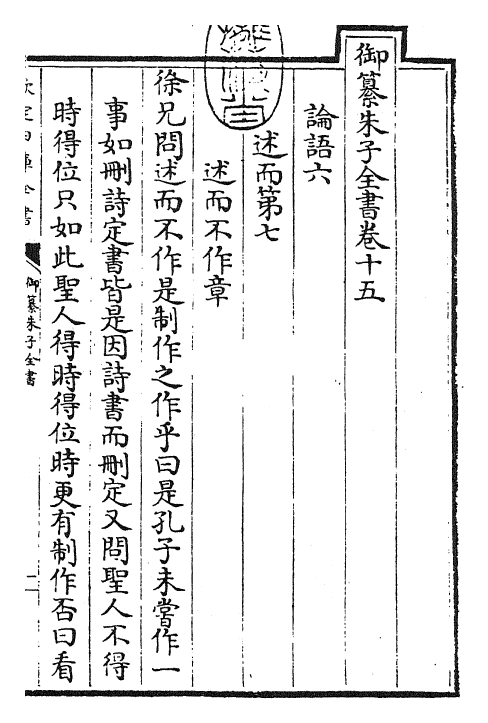 御纂朱子全書卷十五
論語六
述而第七
述而不作章
徐兄問述而不作是制作之作乎曰是孔子未嘗作一
事如刪詩定書皆是因詩書而刪定又問聖人不得
時得位只如此聖人得時得位時更有制作否曰看
欽定四庫全書
御纂朱子全書
二